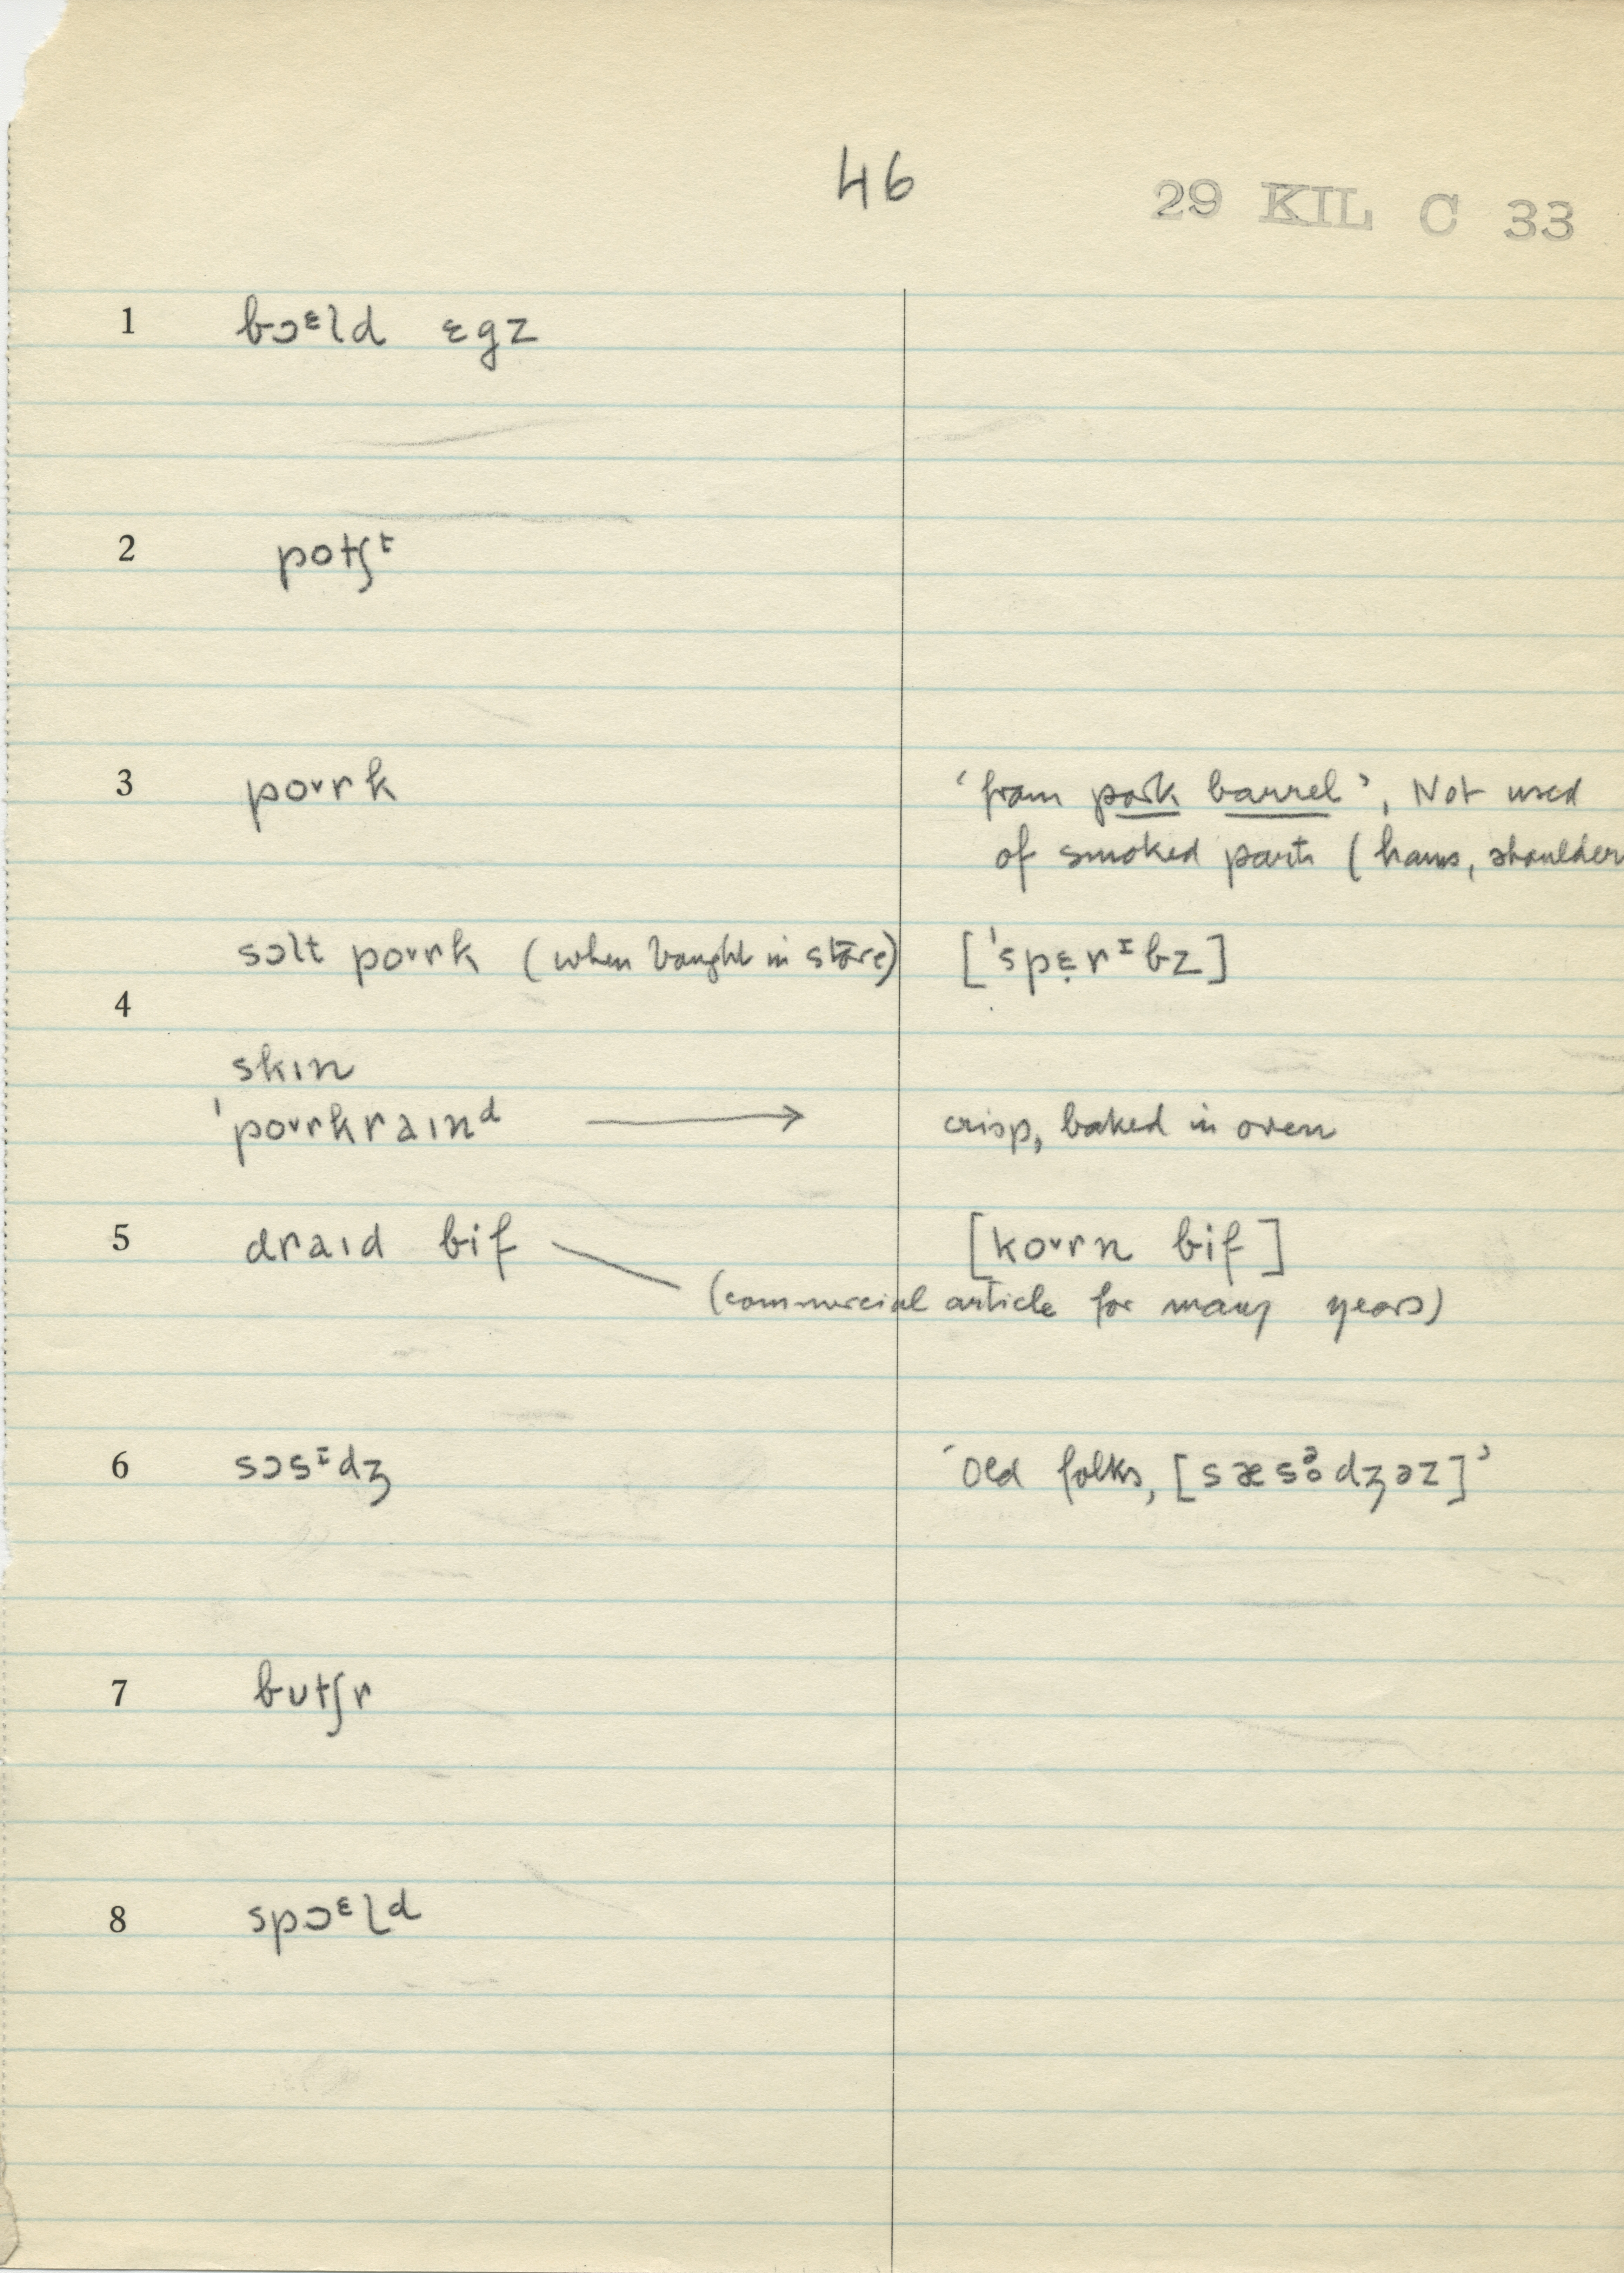 46
29 KIL C 33
1 bɔᵋld ɛgz
2 potʃᵗ
3 poˇrk ‘from pork barrel’, Not used
of smoked parts (hams, shoulder
sɔlt poˇrk (when bought in store) [ˈspɛ̣rᶦbz]
4
skɪn
ˈpoˇrkraɪnᵈ → crisp, baked in oven
5 draɪd bif [koˇrn bif]
(commercial article for many years)
6 sɔsᶦdʒ ‘Old folks, [sæsᵊ̥dʒəz]’
7 butʃr
8 spɔᵋlᵈ